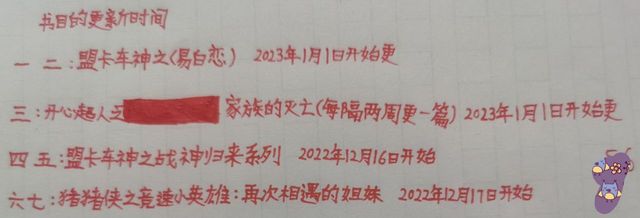 书目的更新时间
一 二：盟卡车神之(易白恋) 2023年1月1日开始更
三：开心超人之 家族的灭亡(每隔两周更一篇) 2023年1月1日开始更
四 五：盟卡车神之战神归来系列 2022年12月16日开始
六七：猪猪侠之竞速小英雄：再次相遇的姐妹 2022年12月17日开始